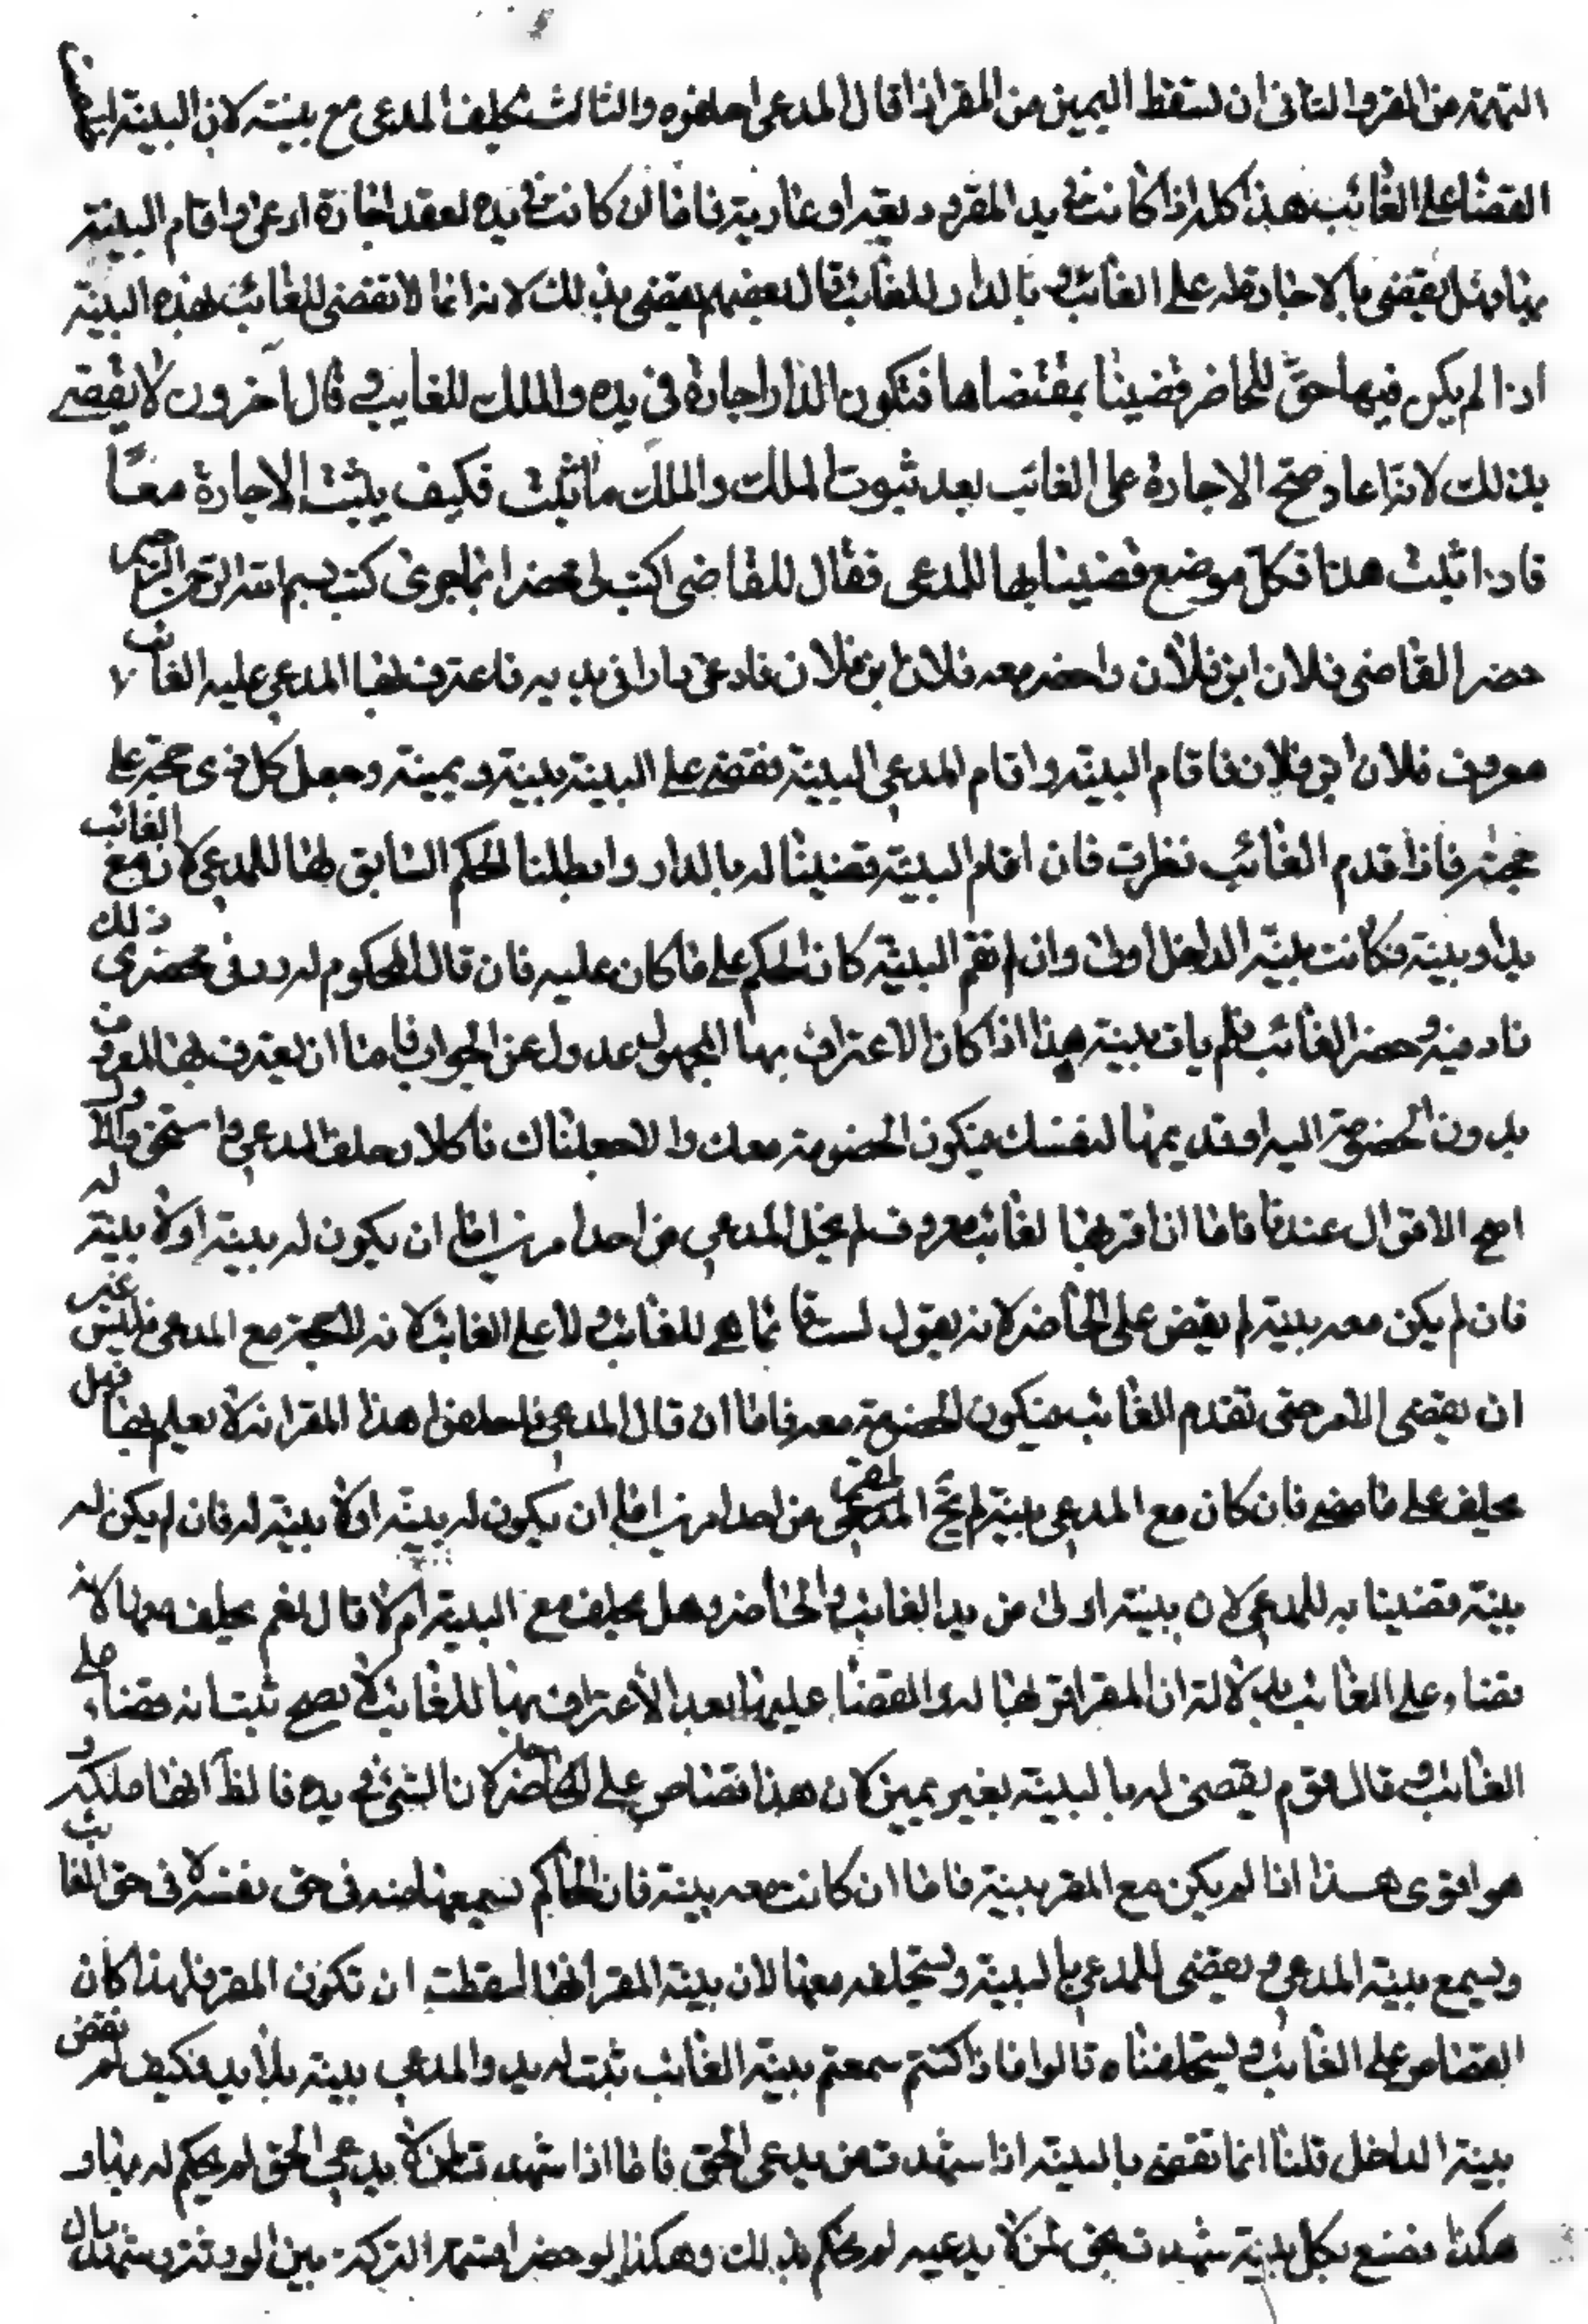 التهمة عن المقر والثاني ان تسقط اليمين عن المقر اذا قال المدعي احلفوه والثالث تحليف المدعي مع بينته لان البينة
القضا على الغائب هذا كله اذا كانت في يد المقر وديعة او عارية فاما ان كانت في يده لعقد اجارة ادعى واقام البينة
بها فهل يقضى بالاجارة له على الغائب و بالدار للغائب قال بعضهم يقضى بذلك لانه انما لا تقضى للغائب بهذه البينة
اذا لم يكن فيها حق للحاضر قضينا بمقتضاها فتكون الدار اجارة في يده والملك للغايب و قال آخرون لا يقضى
بذلك لانه صح الاجارة على الغائب بعد ثبوت الملك والملك ما ثبت فكيف يثبت الاجارة معا
فاذا ثبت هذا فكل موضع قضينا بها للمدعي فقال للقاضي اكتب لي محضرا بما جرى كتب بسم الله الرحمن الرحيم
حضر القاضي فلان ابن فلان واحضر معه فلان ابن فلان فادعى دارا في يديه فاعترف بها المدعى عليه الغائب
معروف فلان ابن فلان فاقام البينة واقام المدعي البينة فقضى على البينة ببينة ويمينه وجعل كل ذي حجة على
حجته فاذا قدم الغائب نظرت فان اقام البينة قضينا له بالدار وابطلنا الحكم السابق بها للمدعي لان مع الغائب
يد او بينة فكانت بينة الداخل اولى وان لم تقم البينة كان الحكم على ما كان عليه فان قال المحكوم له زد في محضري ذلك
زاد فيه وحضر الغائب فلم يات ببينة هذا اذا كان الاعتراف بها لمجهول عدول عن الجواب فاما ان يعترف بها لمعروف
بدون الخصومة اليه او تدعيها لنفسك فيكون الخصومة معك والا جعلناك ناكلا وحلف المدعي و استحق
اصح الاقوال عندنا فاما ان اقر بها لغائب معروف لم يخل المدعي من احد امرين اما ان يكون له بينة او لا بينة له
فان لم يكن معه بينة لم يقض على الحاضر لانه يقول ليست لي انما هي للغائب و لا على الغائب لانه لا حجة مع المدعي فليس غير
ان يقضى الامر حتى تقدم الغائب فيكون الخصومة معه فاما ان قال المدعي فاحلفوا هذا المقر انه لا يعلم بها فهل
يحلف على ما مضى فان كان مع المدعي بينة لم يخل المقر من احد امرين اما ان يكون له بينة او لا بينة له فان لم يكن له
بينة قضينا به للمدعي لان بينته اولى من يد الغائب والحاضر وهل يحلف مع البينة ام لا قال نعم يحلف معها لانه
قضاء على الغائب بدلالة ان المقر اقر بها له و القضا عليها بعد الاعتراف بها للغائب لا يصح ثبت انه قضاء على
الغائب و قال قوم يقضى له بالبينة بغير يمين لان هذا قضاء على الحاضر لان الشئ في يده فالظ انها ملكه و
هو اقوى هذا اذا لم يكن مع المقر بينة فاما ان كانت معه بينة فان الحاكم يسمعها منه في حق نفسه لا في حق الغائب
ويسمع بينة المدعي و يقضى للمدعي بالبينة ويستحلفه معها لان بينة المقر انها اسقطت ان تكون المقر فلهذا كان
القضاء على الغائب و يستحلفناه قالوا فاذا كنتم سمعتم بينة الغائب ثبت له يد والمدعي بينة بلا يد فكيف لم نقض
ببينة الداخل قلنا انما نقضي بالبينة اذا شهدت لمن يدعي الحق فاما اذا شهدت لمن لا يدعي الحق لم يحكم له بها و
هكذا نصنع بكل بينة شهدت بحق لمن لا يدعيه لم يحكم بذلك وهكذا لو حضر قسمة التركة بين الورثة